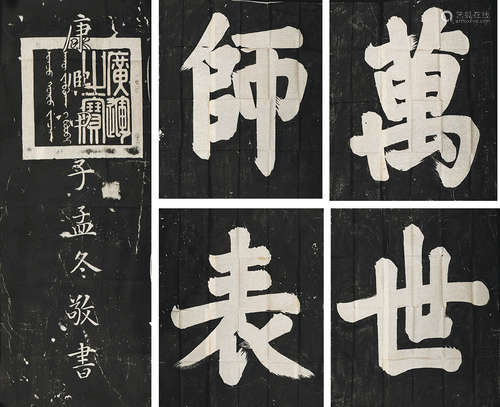 萬世
師表
康熙甲子孟冬敬書
廣運之寶